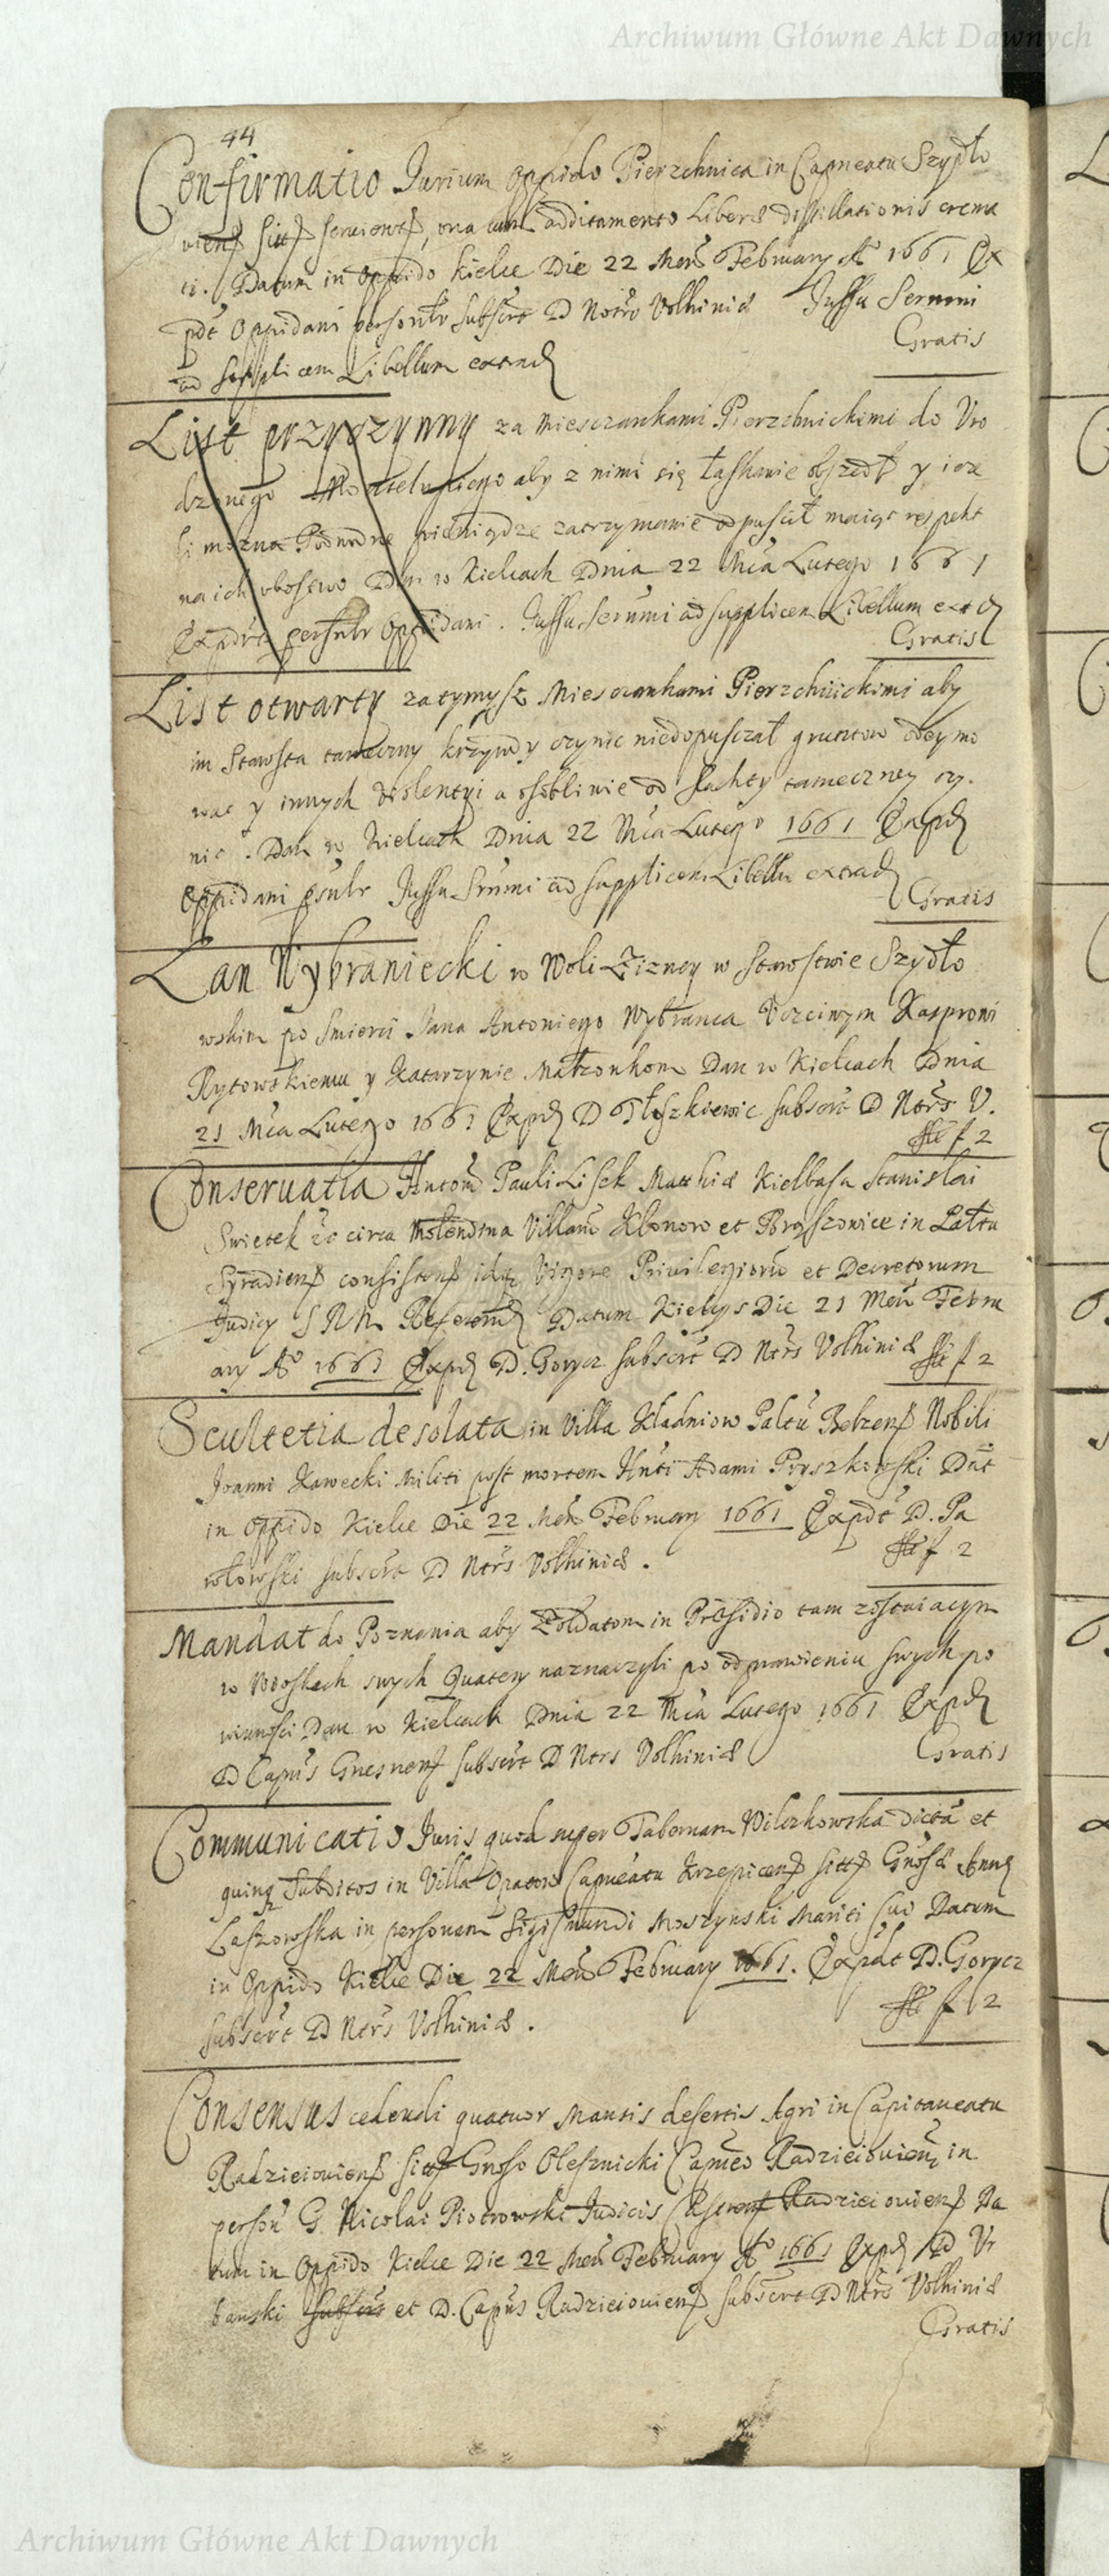 Archiwum Główne Akt Dawnych
44
Confirmatio Jurium Oppido Pierzchnica in Capneatu Szydło
viens sitt seruient, una cum additamento Liberæ distillationis crema
ti. Datum in Oppido Kielce Die 22 Mens February A 1661 Ex
pdt Oppidani personlr subscrt D Notrs Volhiniæ Jussu Sermi
ad supplicem Libellum extrad Gratis
List przyczynny za Miesczankami Pierzchnickimi do Vro
dzonego aby z nimi się łaskawie obszedł y ieże
li można Podwodne pieniądze zatrzymanie odpuscił maiąc respekt
na ich vbostwo Dan w Kielcach Dnia 22 Mca Lutego 1661
Expdt persnlr Oppidani. Jussu Serenmi ad supplicem Libellum extrd
Gratis
List otwarty za tymysz Miesczankami Pierzchnickimi aby
im Starosta tameczny krzywdy czynic niedopusczał gruntow odeymo
wac y innych violentyi a osobliwie od slachty tameczney czy
nic. Dan w Kielcach Dnia 22 Mca Lutego 1661 Expd
Oppidani psnlr Jussu Srnmi ad supplicem Libellu extrad Gratis
Łan Wybraniecki w Woli Żizney w Starostwie Szydło
wskim po smierci Jana Antoniego Wybranca Vczciwym Kasprowi
Rytowskiemu y Katarzynie Małżonkom Dan w Kielcach Dnia
21 Mca Lutego 1661 Expd D Tłoszkiewic subscrt D Ntrs V.
f 2
Conseruatia Pauli Lisek Matthiæ Kielbasa Stanislai
Swietek circa Molendina Villarū Kłonowo et Broszowice in Pałtu
Syradiens consistens idq Vigore Privilegiorū et Decretorum
Judicy S R M Datum Kielcys Die 21 Mens Febru
ary A° 1661 Expd D. Gorycz subscrt D Ntrs Volhiniæ f 2
Scultetia desolata in Villa Kładniow Paltū Belzens Nobili
Joanni Kawecki Militi post mortem Adami Pryszkowski Dat
in Oppido Kielce Die 22 Mens February 1661 Expdt D. Pa
włowski subscrt D Ntrs Volhiniæ. f 2
Mandat do Poznania aby Zołdatom in Præsidio tam zostaiacym
w Wioskach swych Quatery naznaczyli po odprawieniu swych po
winnosci Dan w Kielcach Dnia 22 Mca Lutego 1661 Expd
D Capns Gnesnens subscrt D Ntrs Volhiniæ Gratis
Communicatio Juris quod super Tabernam Wilczkowska dictā et
quinq Subditos in Villa Opatow Capneatu Krzepicens sitts Gnosæ Annæ
Laszowska in personam Sigismundi Moszynski Mariti sui Datum
in Oppido Kielce Die 22 Mens February 1661. Expdt D. Gorycz
subscrt D Ntrs Volhiniæ. f 12
Consensus cedendi quatuor Mansis desertis Agri in Capitaneatu
Radzieiouiens sitts Gnoso Olesznicki Capneo Radzieiouiens in
persona G. Nicolai Piotrowski Judicis Radzieiouiens Da
tum in Oppido Kielce Die 22 Mens February A° 1661 Expd D Vr
banski subscrt et D. Capns Radzieiouiens subscrt D Ntrs Volhiniæ
Gratis
Archiwum Główne Akt Dawnych